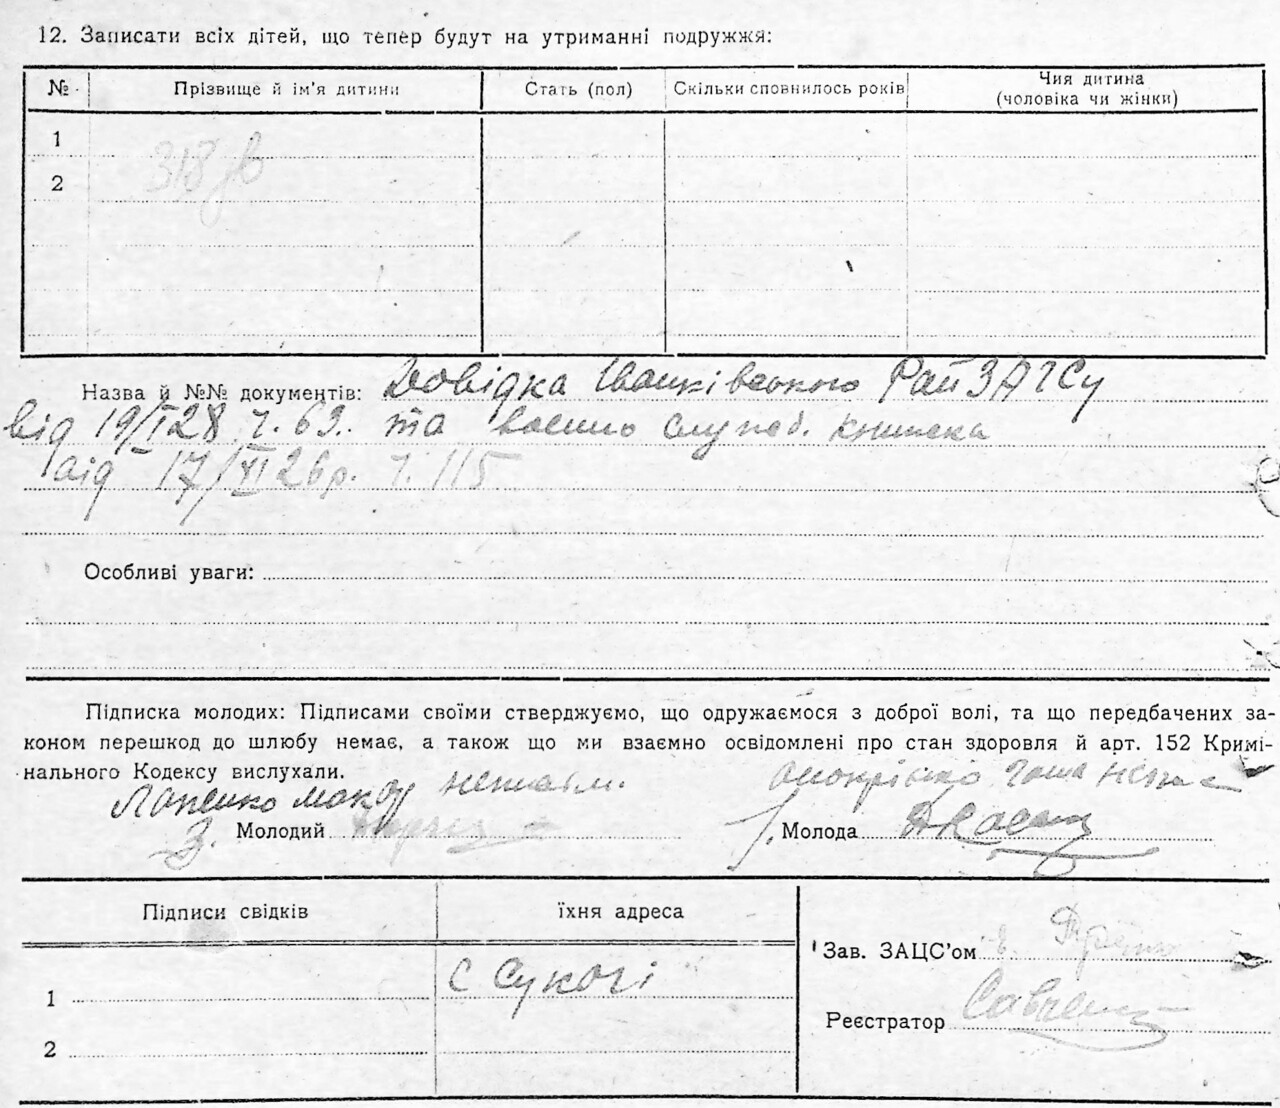 12. Записати всіх дітей, що тепер будут на утриманні подружжя:
№ Прізвище й ім'я дитини Стать (пол) Скільки сповнилось років Чия дитина (чоловіка чи жінки)
1
2
318
Назва й №№ документів: Довідка Іванківського РайЗАГСу
від 19/I 28 ч. 63. та воєнно служб. книжка
від 17/XI 26 р. ч. 115
Особливі уваги:
Підписка молодих: Підписами своїми стверджуємо, що одружаємося з доброї волі, та що передбачених за-
коном перешкод до шлюбу немає, а також що ми взаємно освідомлені про стан здоровля й арт. 152 Кримі-
нального Кодексу вислухали.
неписьм.
З. Молодий
Молода
Підписи свідків їхня адреса
1 С Сукачі
2
Зав. ЗАЦС'ом
Реєстратор